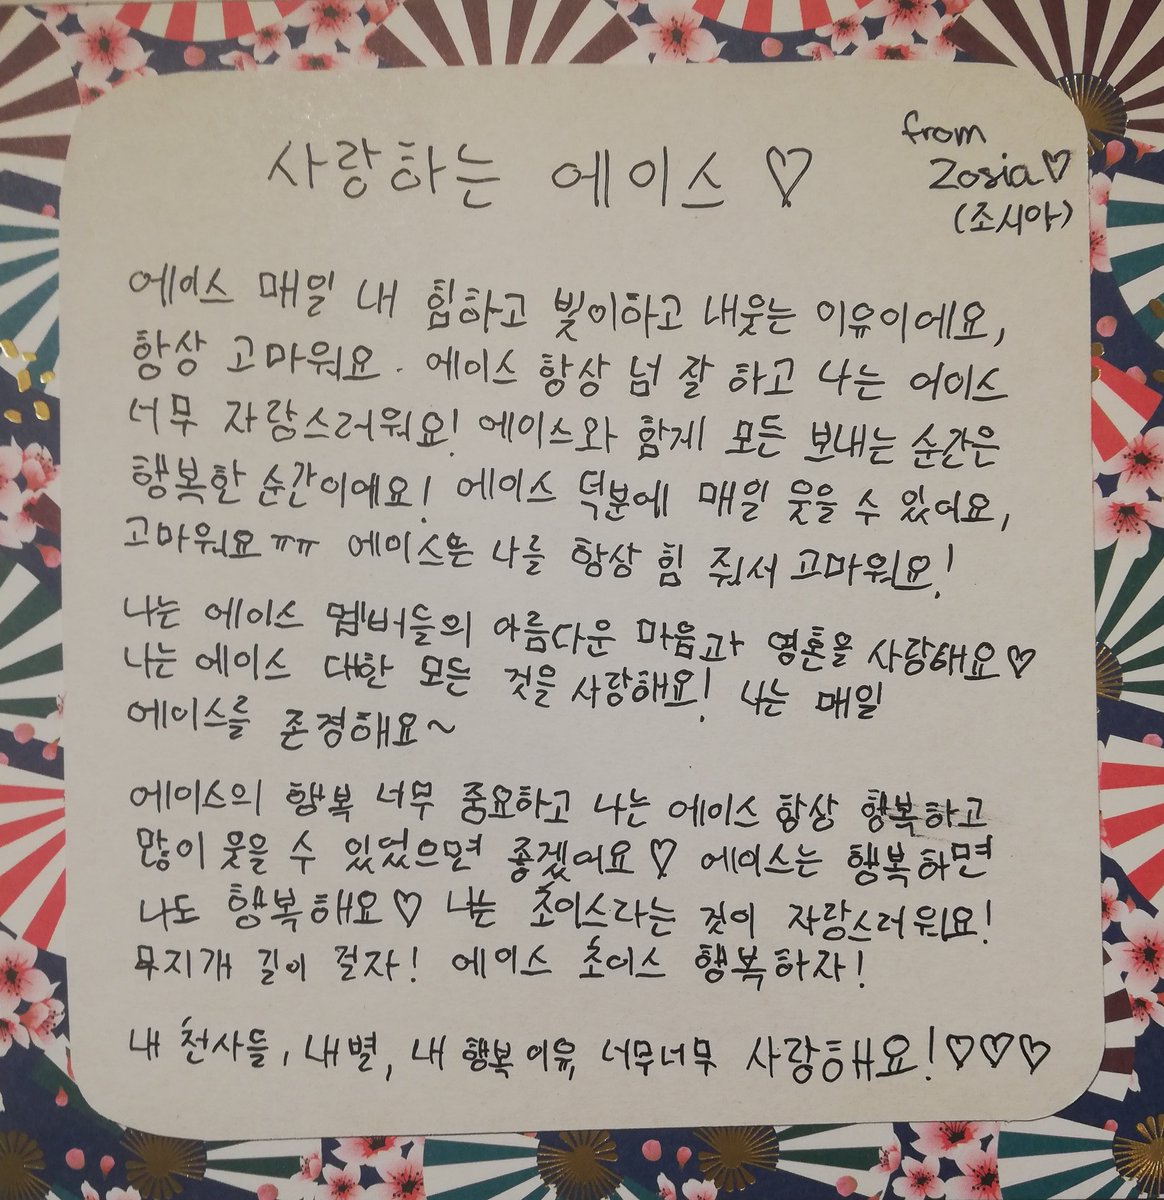 사랑하는 에이스 ♡
from
Zosia♡
(조시아)
에이스 매일 내 힘하고 빛이하고 내웃는 이유이에요,
항상 고마워요. 에이스 항상 넘 잘 하고 나는 에이스
너무 자랑스러워요! 에이스와 함게 모든 보내는 순간은
행복한 순간이에요! 에이스 덕분에 매일 웃을 수 있어요,
고마워요 ㅠㅠ 에이스는 나를 항상 힘 줘서 고마워요!
나는 에이스 멤버들의 아름다운 마음과 영혼을 사랑해요♡
나는 에이스 대한 모든 것을 사랑해요! 나는 매일
에이스를 존경해요~
에이스의 행복 너무 중요하고 나는 에이스 항상 행복하고
많이 웃을 수 있었으면 좋겠어요♡ 에이스는 행복하면
나도 행복해요♡ 나는 초이스라는 것이 자랑스러워요!
무지개 길이 걷자! 에이스 초이스 행복하자!
내 천사들, 내별, 내 행복 이유, 너무너무 사랑해요!♡♡♡